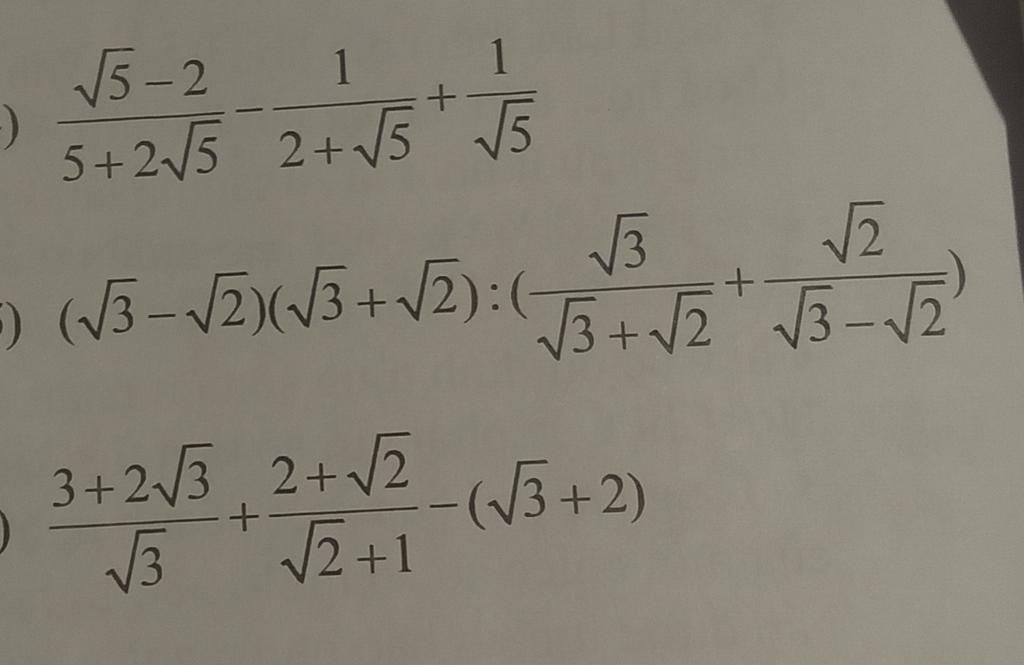 ) (√5 − 2)/(5 + 2√5) − 1/(2 + √5) + 1/√5
) (√3 − √2)(√3 + √2) : (√3/(√3 + √2) + √2/(√3 − √2))
) (3 + 2√3)/√3 + (2 + √2)/(√2 + 1) − (√3 + 2)